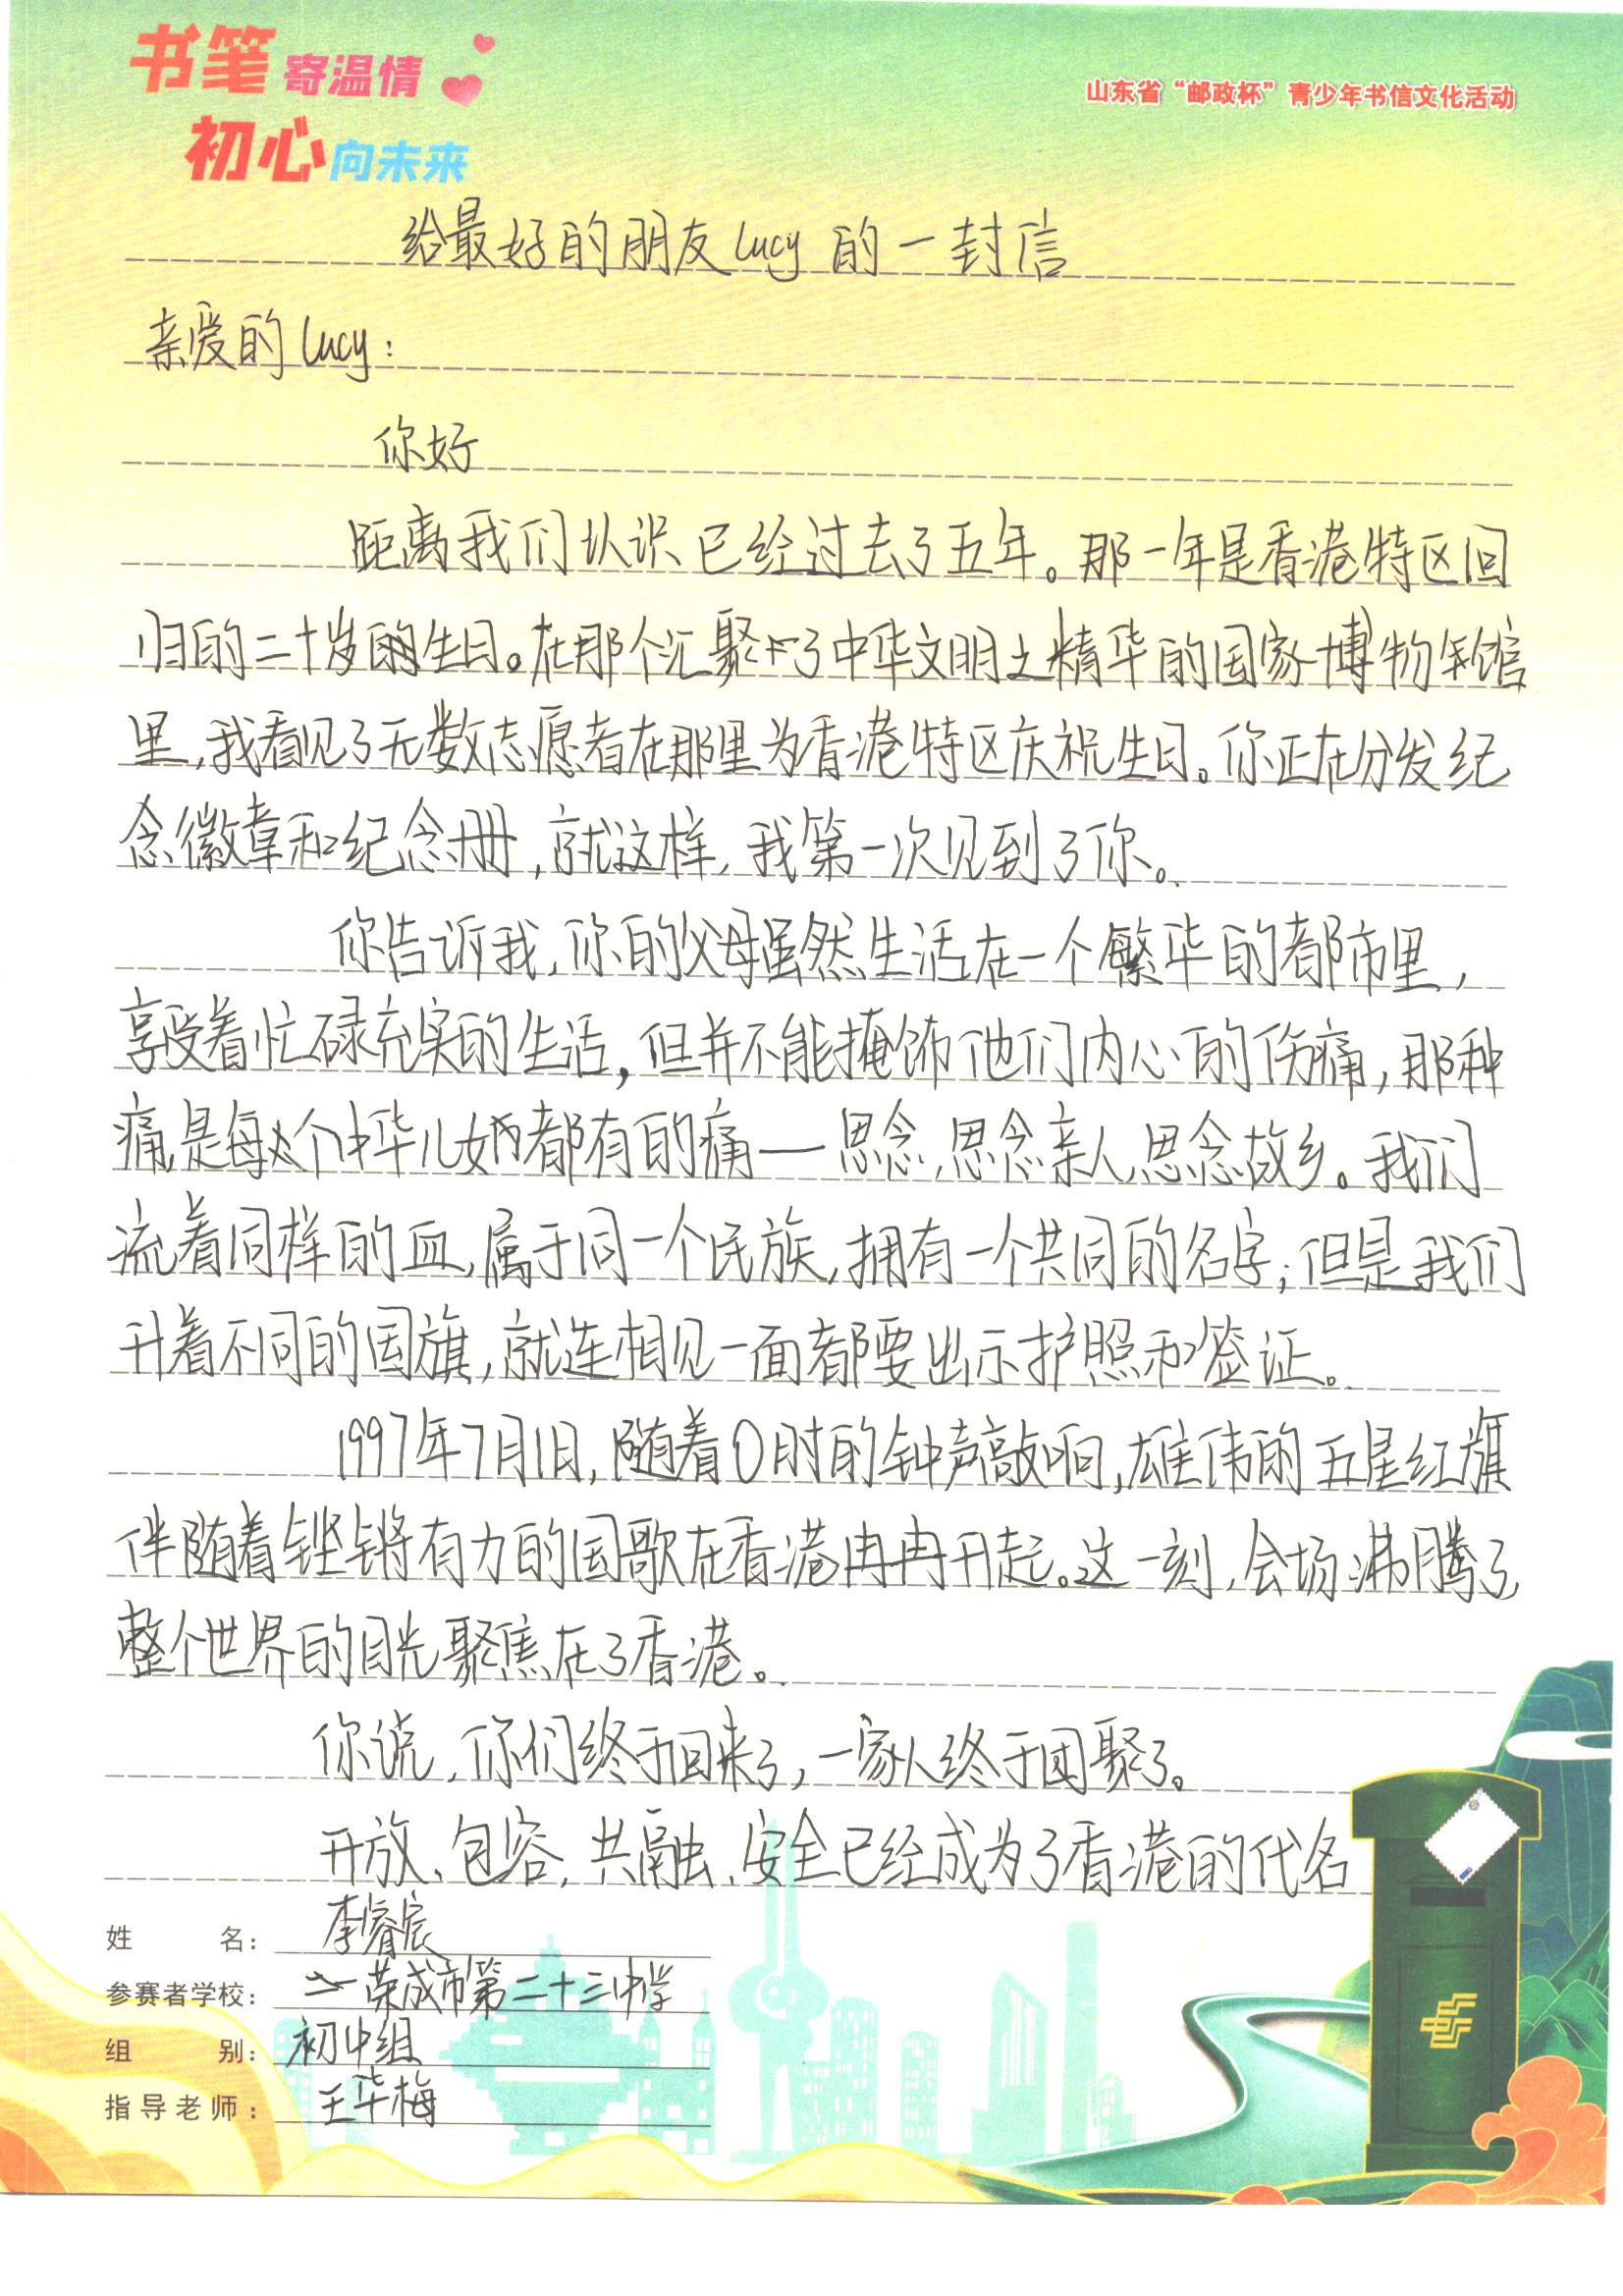 书笔寄温情
初心向未来
山东省“邮政杯”青少年书信文化活动
给最好的朋友Lucy的一封信
亲爱的Lucy：
你好
距离我们认识已经过去了五年。那一年是香港特区回
归的二十岁的生日。在那个汇聚了中华文明之精华的国家博物馆
里，我看见了无数志愿者在那里为香港特区庆祝生日。你正在分发纪
念徽章和纪念册，就这样，我第一次见到了你。
你告诉我，你的父母虽然生活在一个繁华的都市里，
享受着忙碌充实的生活，但并不能掩饰他们内心的伤痛，那种
痛是每个中华儿女都有的痛——思念，思念亲人，思念故乡。我们
流着同样的血，属于同一个民族，拥有一个共同的名字；但是我们
升着不同的国旗，就连相见一面都要出示护照和签证。
1997年7月1日，随着0时的钟声敲响，雄伟的五星红旗
伴随着铿锵有力的国歌在香港冉冉升起。这一刻，会场沸腾了，
整个世界的目光聚焦在了香港。
你说，你们终于回来了，一家人终于团聚了。
开放、包容，共融、安全已经成为了香港的代名
姓名：李睿宸
参赛者学校：荣成市第二十三中学
组别：初中组
指导老师：王华梅